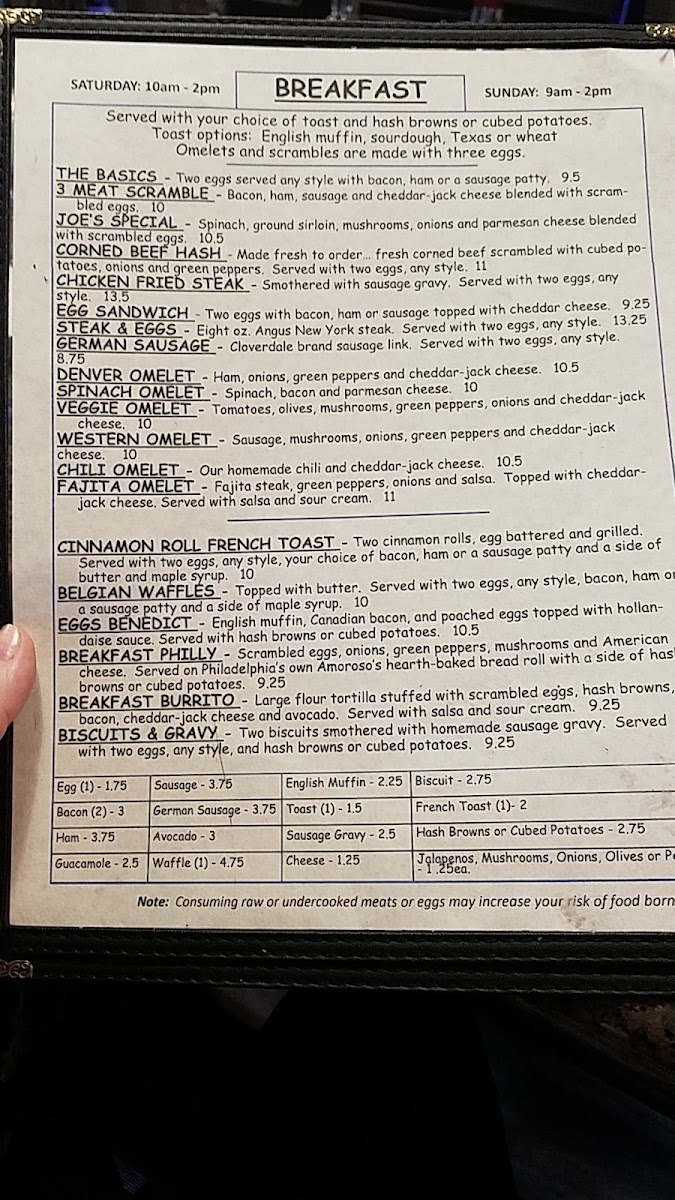 SATURDAY: 10am - 2pm
BREAKFAST
SUNDAY: 9am - 2pm
Served with your choice of toast and hash browns or cubed potatoes.
Toast options: English muffin, sourdough, Texas or wheat
Omelets and scrambles are made with three eggs.
THE BASICS - Two eggs served any style with bacon, ham or a sausage patty. 9.5
3 MEAT SCRAMBLE - Bacon, ham, sausage and cheddar-jack cheese blended with scram-
bled eggs. 10
JOE'S SPECIAL - Spinach, ground sirloin, mushrooms, onions and parmesan cheese blended
with scrambled eggs. 10.5
CORNED BEEF HASH - Made fresh to order... fresh corned beef scrambled with cubed po-
tatoes, onions and green peppers. Served with two eggs, any style. 11
CHICKEN FRIED STEAK - Smothered with sausage gravy. Served with two eggs, any
style. 13.5
EGG SANDWICH - Two eggs with bacon, ham or sausage topped with cheddar cheese. 9.25
STEAK & EGGS - Eight oz. Angus New York steak. Served with two eggs, any style. 13.25
GERMAN SAUSAGE - Cloverdale brand sausage link. Served with two eggs, any style.
8.75
DENVER OMELET - Ham, onions, green peppers and cheddar-jack cheese. 10.5
SPINACH OMELET - Spinach, bacon and parmesan cheese. 10
VEGGIE OMELET - Tomatoes, olives, mushrooms, green peppers, onions and cheddar-jack
cheese. 10
WESTERN OMELET - Sausage, mushrooms, onions, green peppers and cheddar-jack
cheese. 10
CHILI OMELET - Our homemade chili and cheddar-jack cheese. 10.5
FAJITA OMELET - Fajita steak, green peppers, onions and salsa. Topped with cheddar-
jack cheese. Served with salsa and sour cream. 11
CINNAMON ROLL FRENCH TOAST - Two cinnamon rolls, egg battered and grilled.
Served with two eggs, any style, your choice of bacon, ham or a sausage patty and a side of
butter and maple syrup. 10
BELGIAN WAFFLES - Topped with butter. Served with two eggs, any style, bacon, ham or
a sausage patty and a side of maple syrup. 10
EGGS BENEDICT - English muffin, Canadian bacon, and poached eggs topped with hollan-
daise sauce. Served with hash browns or cubed potatoes. 10.5
BREAKFAST PHILLY - Scrambled eggs, onions, green peppers, mushrooms and American
cheese. Served on Philadelphia's own Amoroso's hearth-baked bread roll with a side of has
browns or cubed potatoes. 9.25
BREAKFAST BURRITO - Large flour tortilla stuffed with scrambled eggs, hash browns,
bacon, cheddar-jack cheese and avocado. Served with salsa and sour cream. 9.25
BISCUITS & GRAVY - Two biscuits smothered with homemade sausage gravy. Served
with two eggs, any style, and hash browns or cubed potatoes. 9.25
Egg (1) - 1.75 Sausage - 3.75 English Muffin - 2.25 Biscuit - 2.75
Bacon (2) - 3 German Sausage - 3.75 Toast (1) - 1.5 French Toast (1)- 2
Ham - 3.75 Avocado - 3 Sausage Gravy - 2.5 Hash Browns or Cubed Potatoes - 2.75
Guacamole - 2.5 Waffle (1) - 4.75 Cheese - 1.25 Jalapenos, Mushrooms, Onions, Olives or
- 1.25ea.
Note: Consuming raw or undercooked meats or eggs may increase your risk of food born